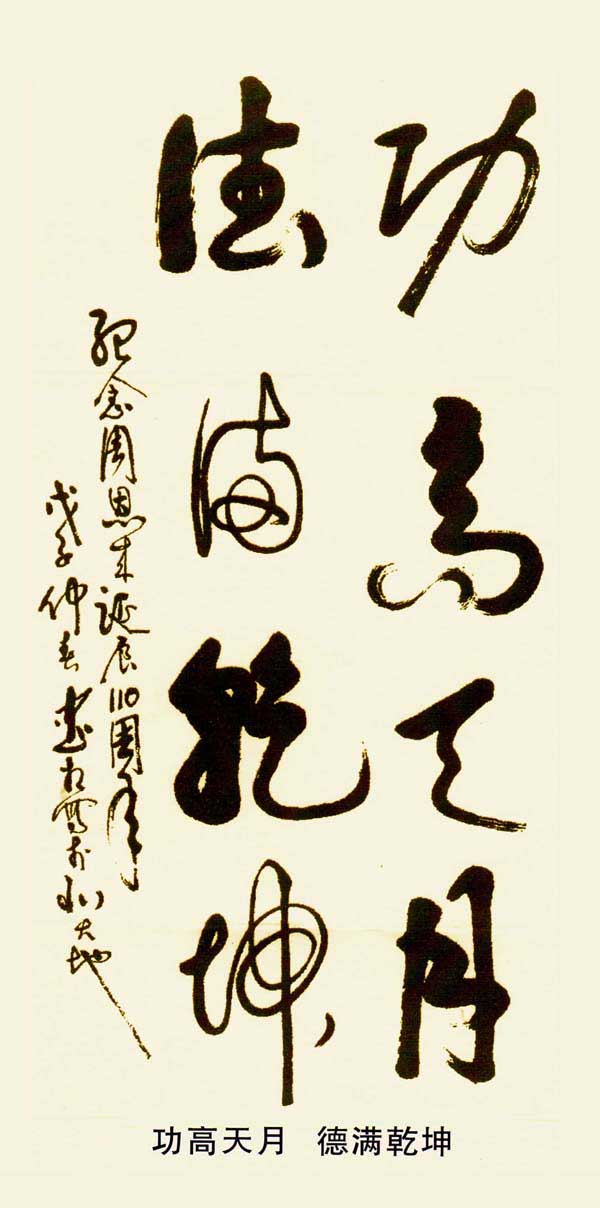 功高天月
德满乾坤
纪念周恩来诞辰110周年
戊子仲春
功高天月 德满乾坤